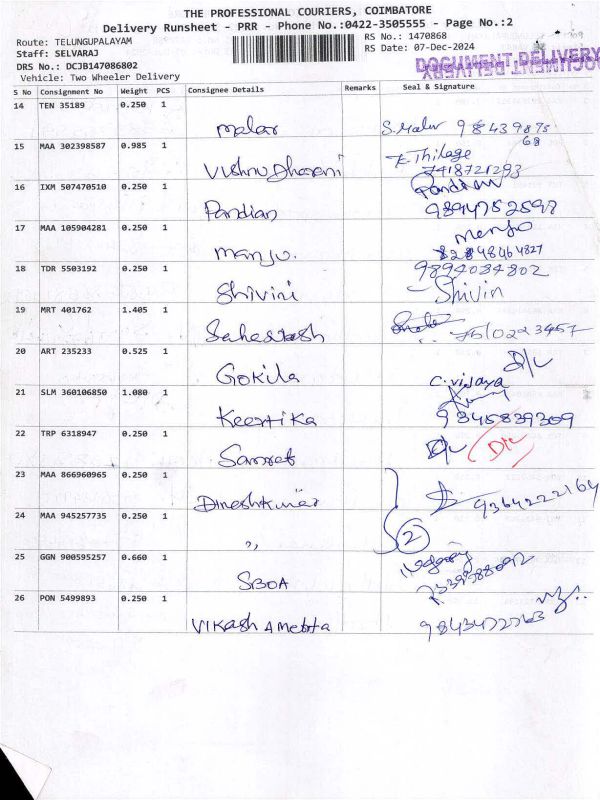 THE PROFESSIONAL COURIERS, COIMBATORE
Delivery Runsheet - PRR - Phone No.:0422-3505555 - Page No.:2
Route: TELUNGUPALAYAM
RS No.: 1470868
Staff: SELVARAJ
RS Date: 07-Dec-2024
DOCUMENT DELIVERY
DRS No.: DCJB147086802
Vehicle: Two Wheeler Delivery
S No Consignment No Weight PCS Consignee Details Remarks Seal & Signature
14 TEN 35189 0.250 1
Malar S. Malar 98439875
68
15 MAA 302398587 0.985 1
Vishnu Dharani Thilage
7418721293
16 IXM 507470510 0.250 1
Pandian Pandian
9894752597
17 MAA 105904281 0.250 1
Manju. Menju
82848464827
18 TDR 5503192 0.250 1
9894084802
Shivini Shivin
19 MRT 401762 1.405 1
7510223457
20 ART 235233 0.525 1
Gokila D/c
21 SLM 360106850 1.080 1
C. Vijaya
Keertika 9845839309
22 TRP 6318947 0.250 1
D/c D/c
23 MAA 866960965 0.250 1
Dineshkumar 9364222164
24 MAA 945257735 0.250 1
,, 2
25 GGN 900595257 0.660 1
SBOA
26 PON 5499893 0.250 1
Vikash Amehta